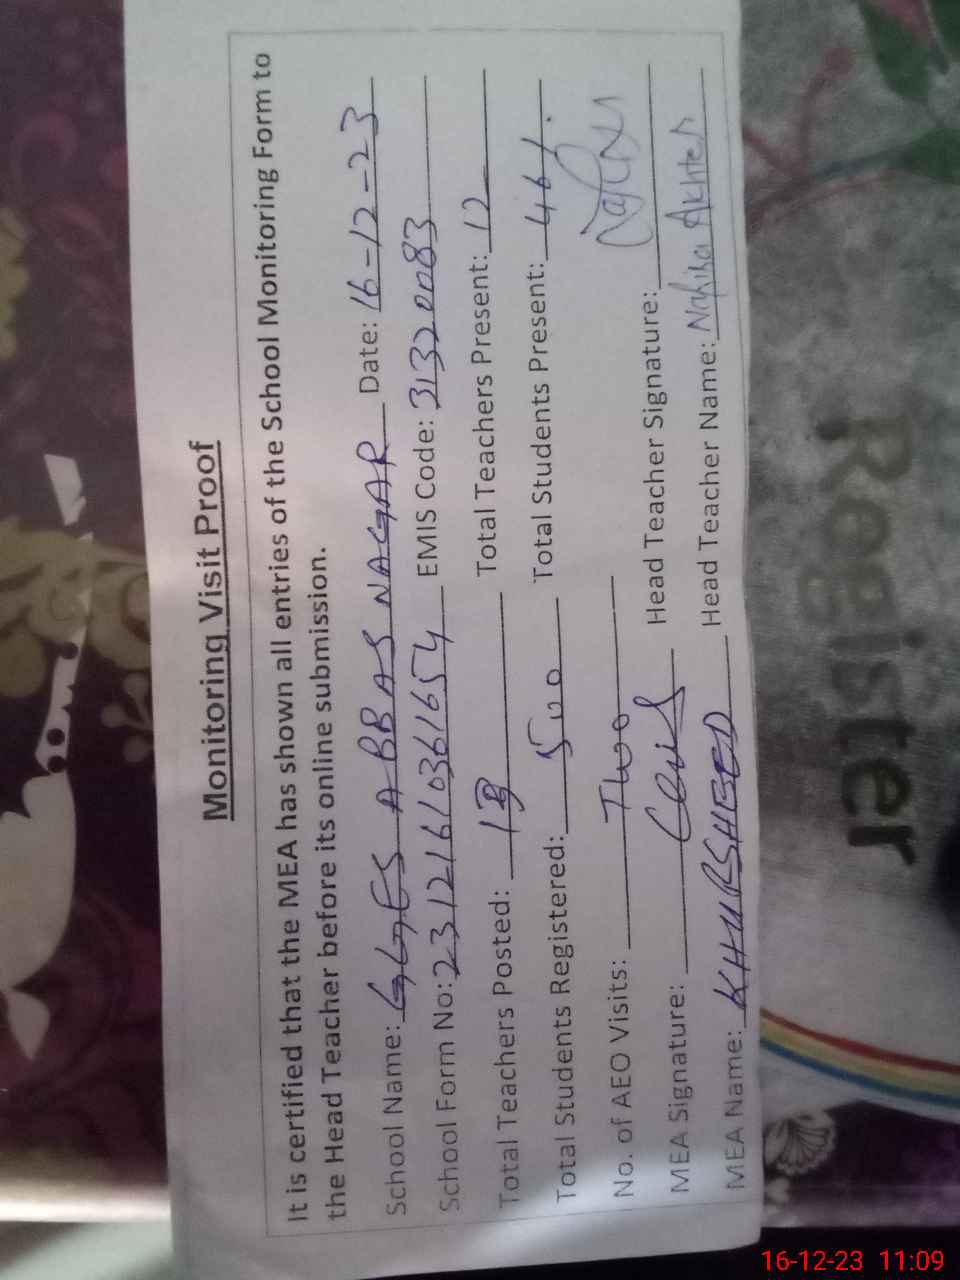 Monitoring Visit Proof
It is certified that the MEA has shown all entries of the School Monitoring Form to
the Head Teacher before its online submission.
School Name: GGES ABBAS NAGAR Date: 16-12-23
School Form No: 231216103616 54 EMIS Code: 31320083
Total Teachers Posted: Total Teachers Present: 12
Total Students Registered: 500 Total Students Present: 461.
No. of AEO Visits: Two
MEA Signature: Head Teacher Signature:
MEA Name: KHURSHEED Head Teacher Name: Akhter
Register
16-12-23 11:09